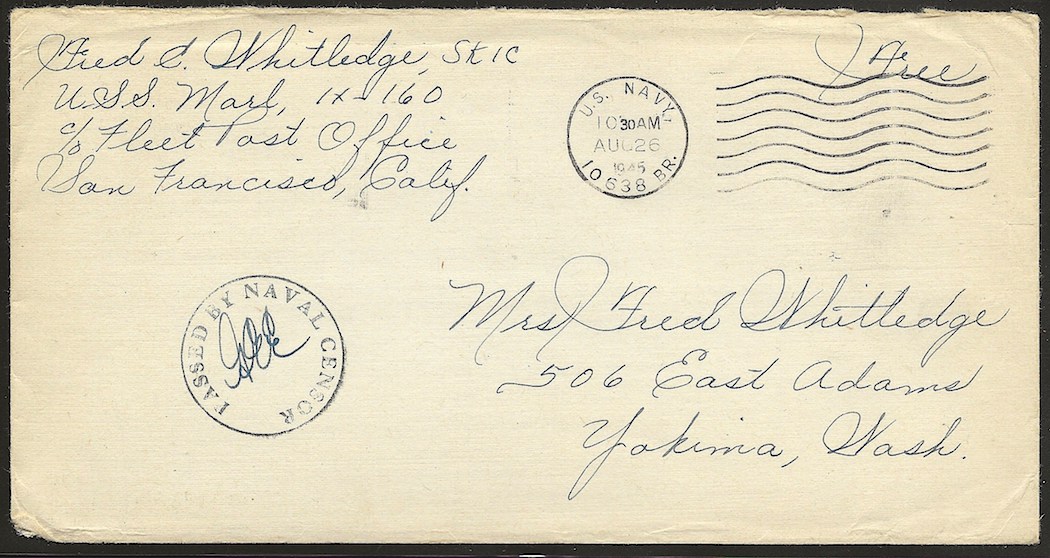 Fred C. Whitledge, SK1C
U.S.S. Marl, IX-160
c/o Fleet Post Office
San Francisco, Calif.
Free
U.S. NAVY
10 30 AM
AUG 26
1945
10638 BR.
PASSED BY NAVAL CENSOR
Mrs Fred Whitledge
506 East Adams
Yakima, Wash.